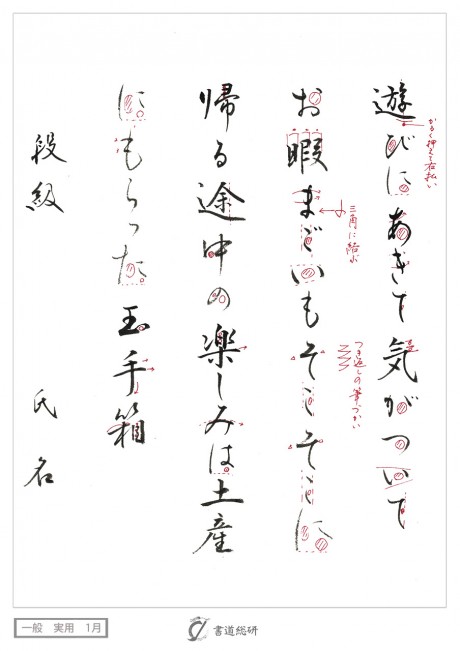 遊びにあきて気がついて
お暇まごいもそこそこに
帰る途中の楽しみは土産
にもらった玉手箱
段級 氏名
かるく押えて右払い
三角に結ぶ
つき返しの筆づかい
一般 実用 1月
書道総研